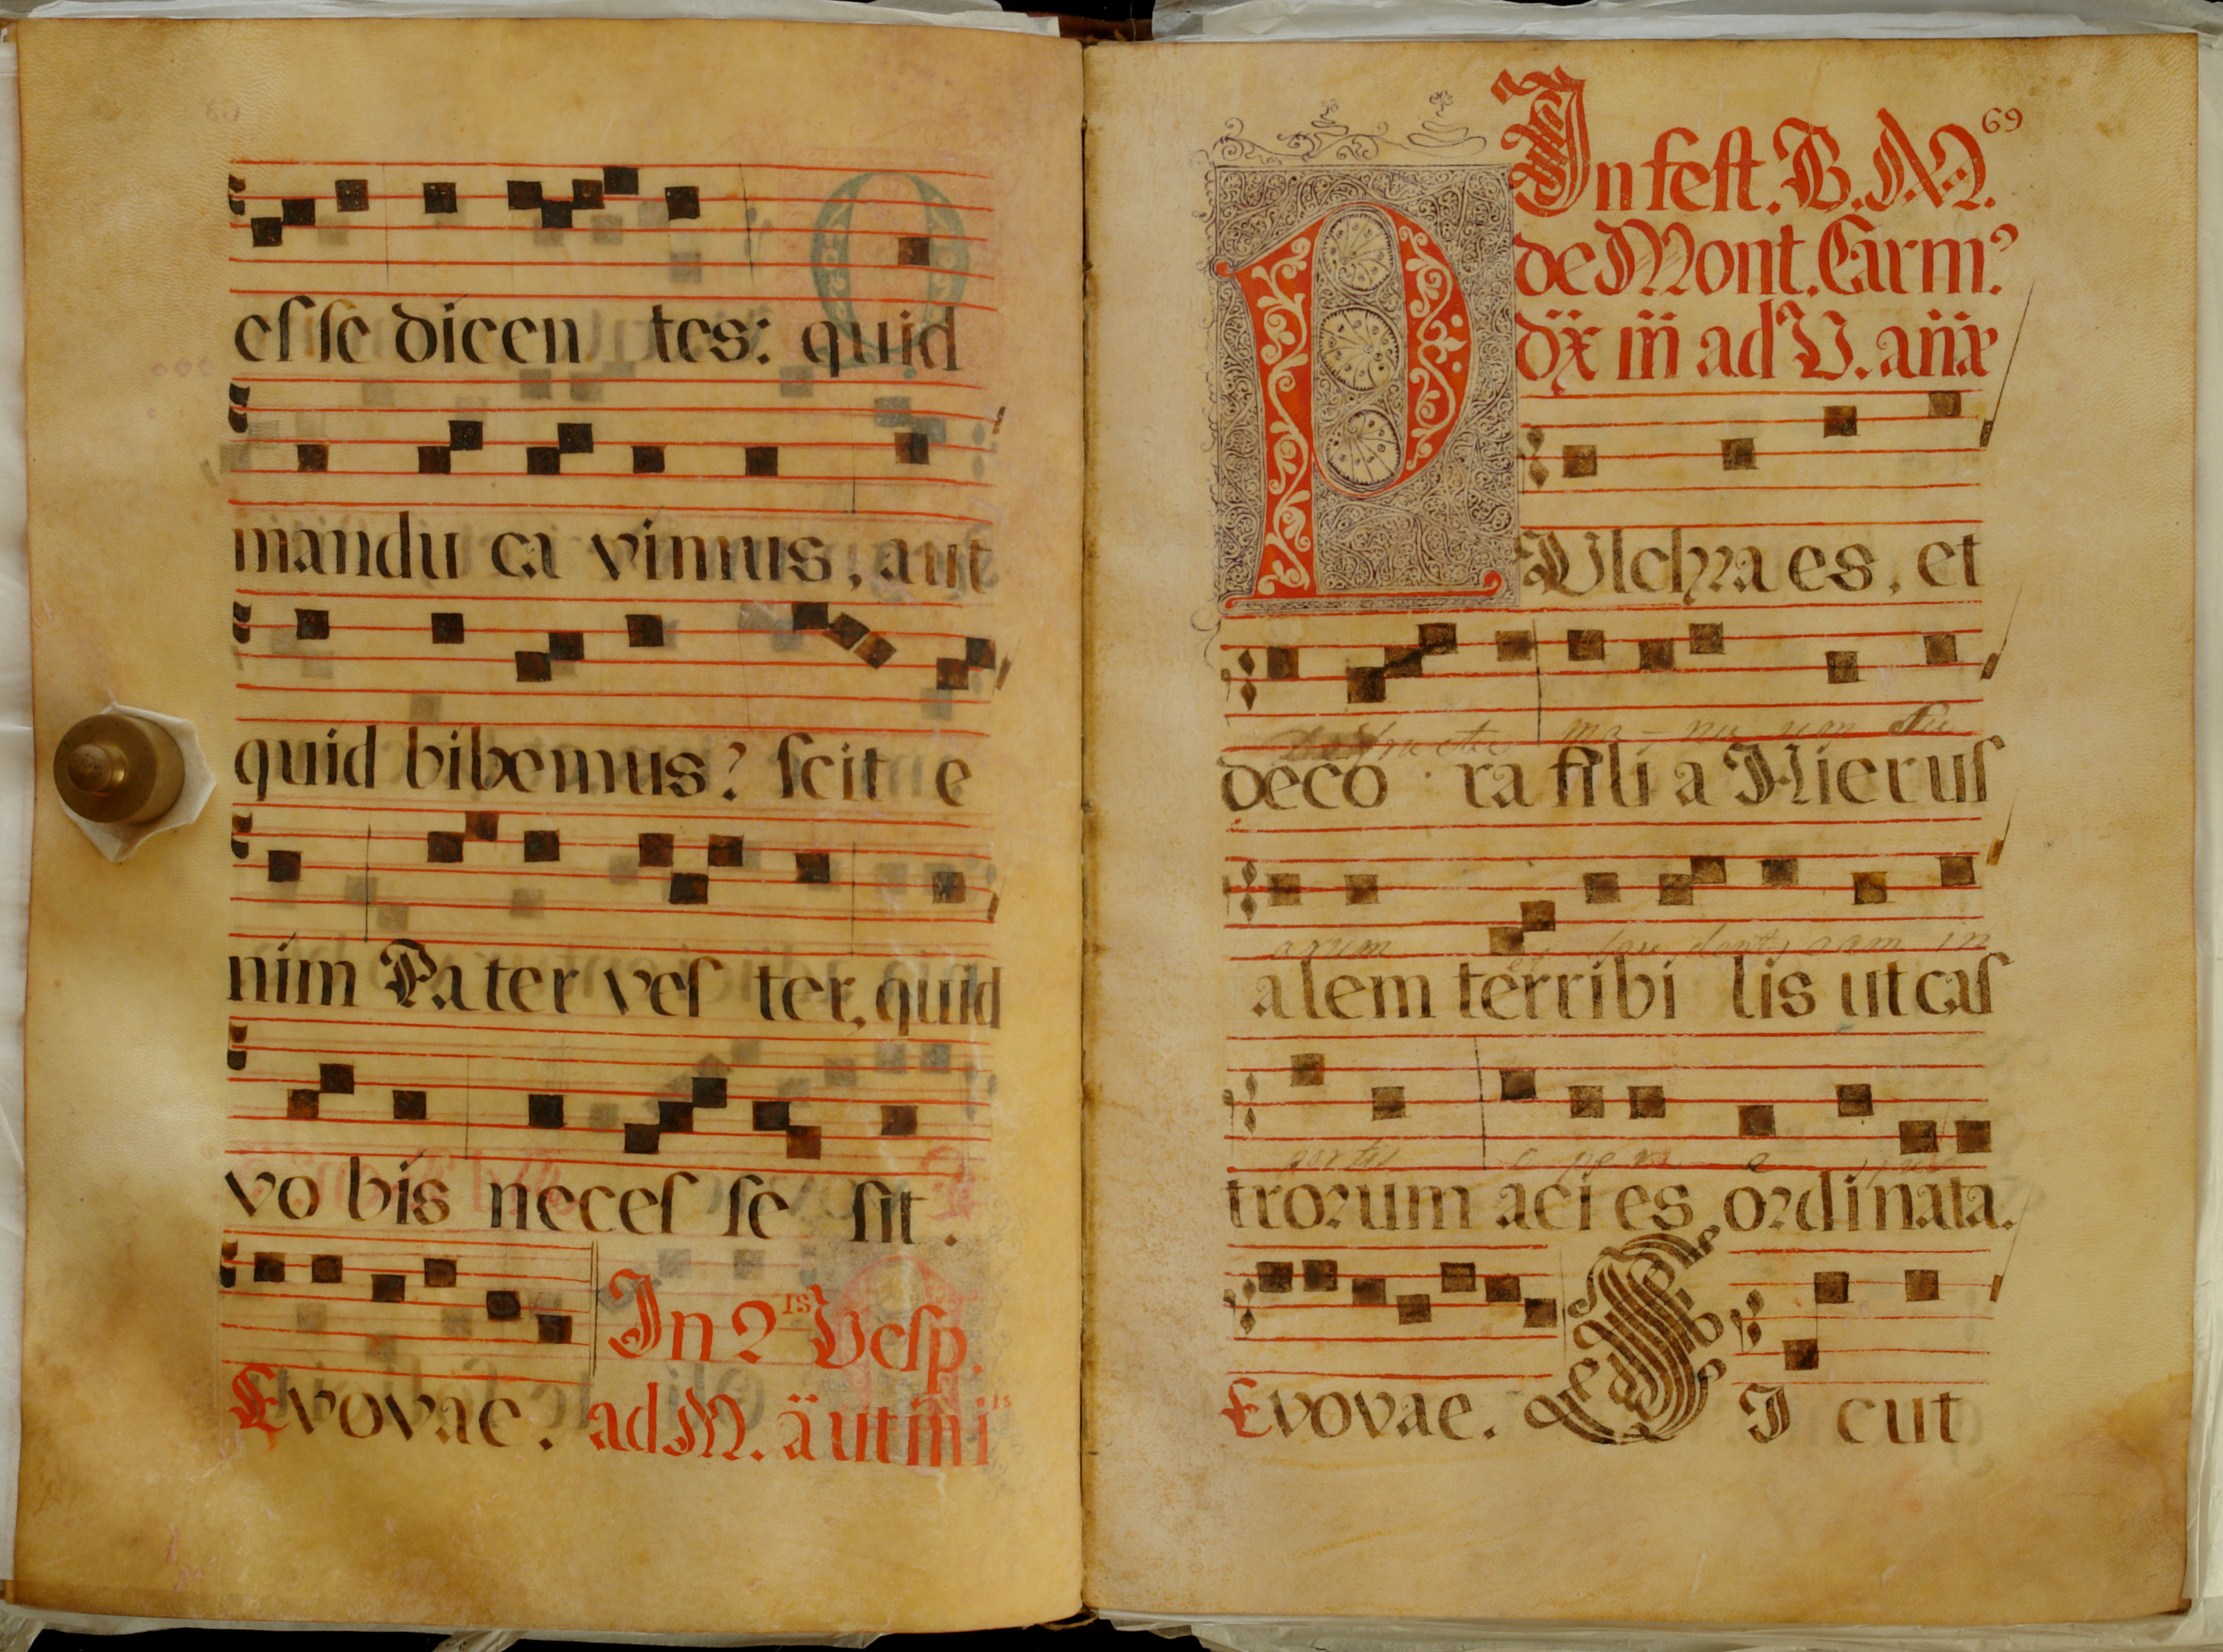 esse dicen tes: quid
mandu ca vimus, aut
quid bibemus? scit e
nim Pa ter ves ter, quid
vo bis neces se sit.
In 2 is Vesp.
Evovae. ad M. äut mi is
69
In fest. B. M.
de Mont. Carm.
ad V.
PUlchra es, et
ma - nu um
deco ra fili a Hierus
arum
alem terribi lis ut cas
portis
trorum aci es ordinata.
Evovae. SI cut